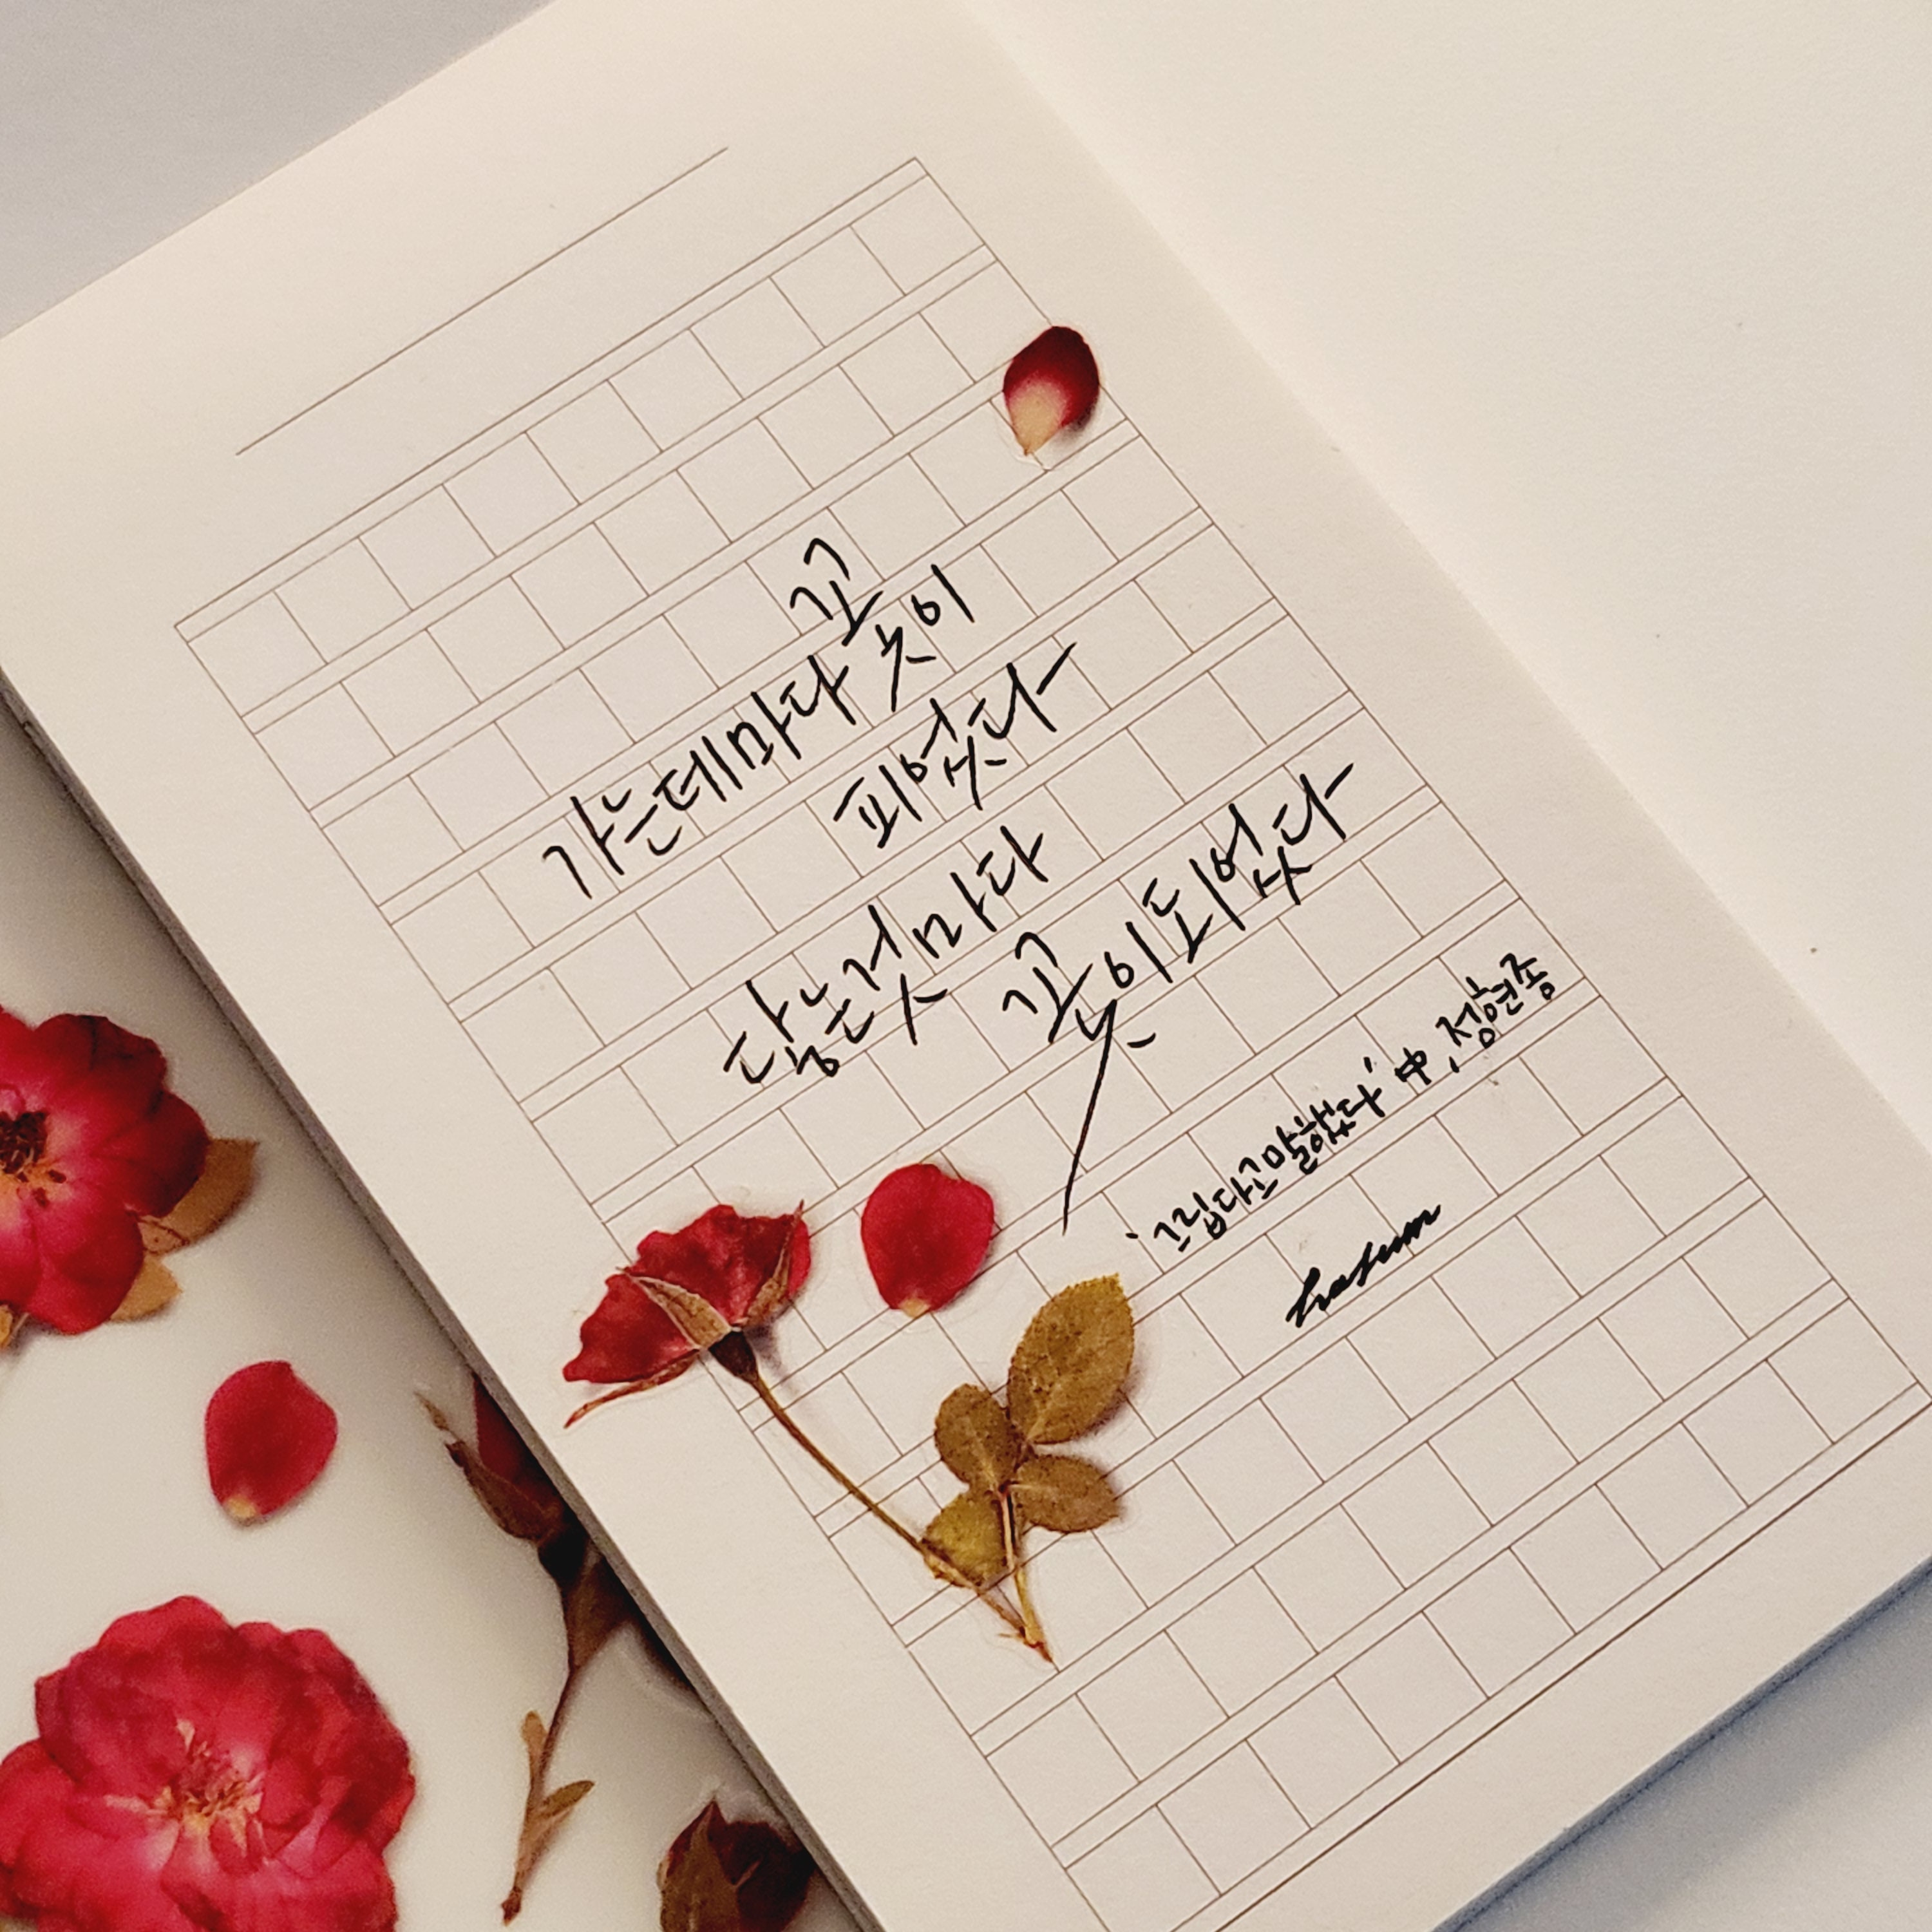 가는데마다 꽃이
피었다
닮은것마다
꽃이되었다
'그립다고말했다' 中, 정현종
hasum